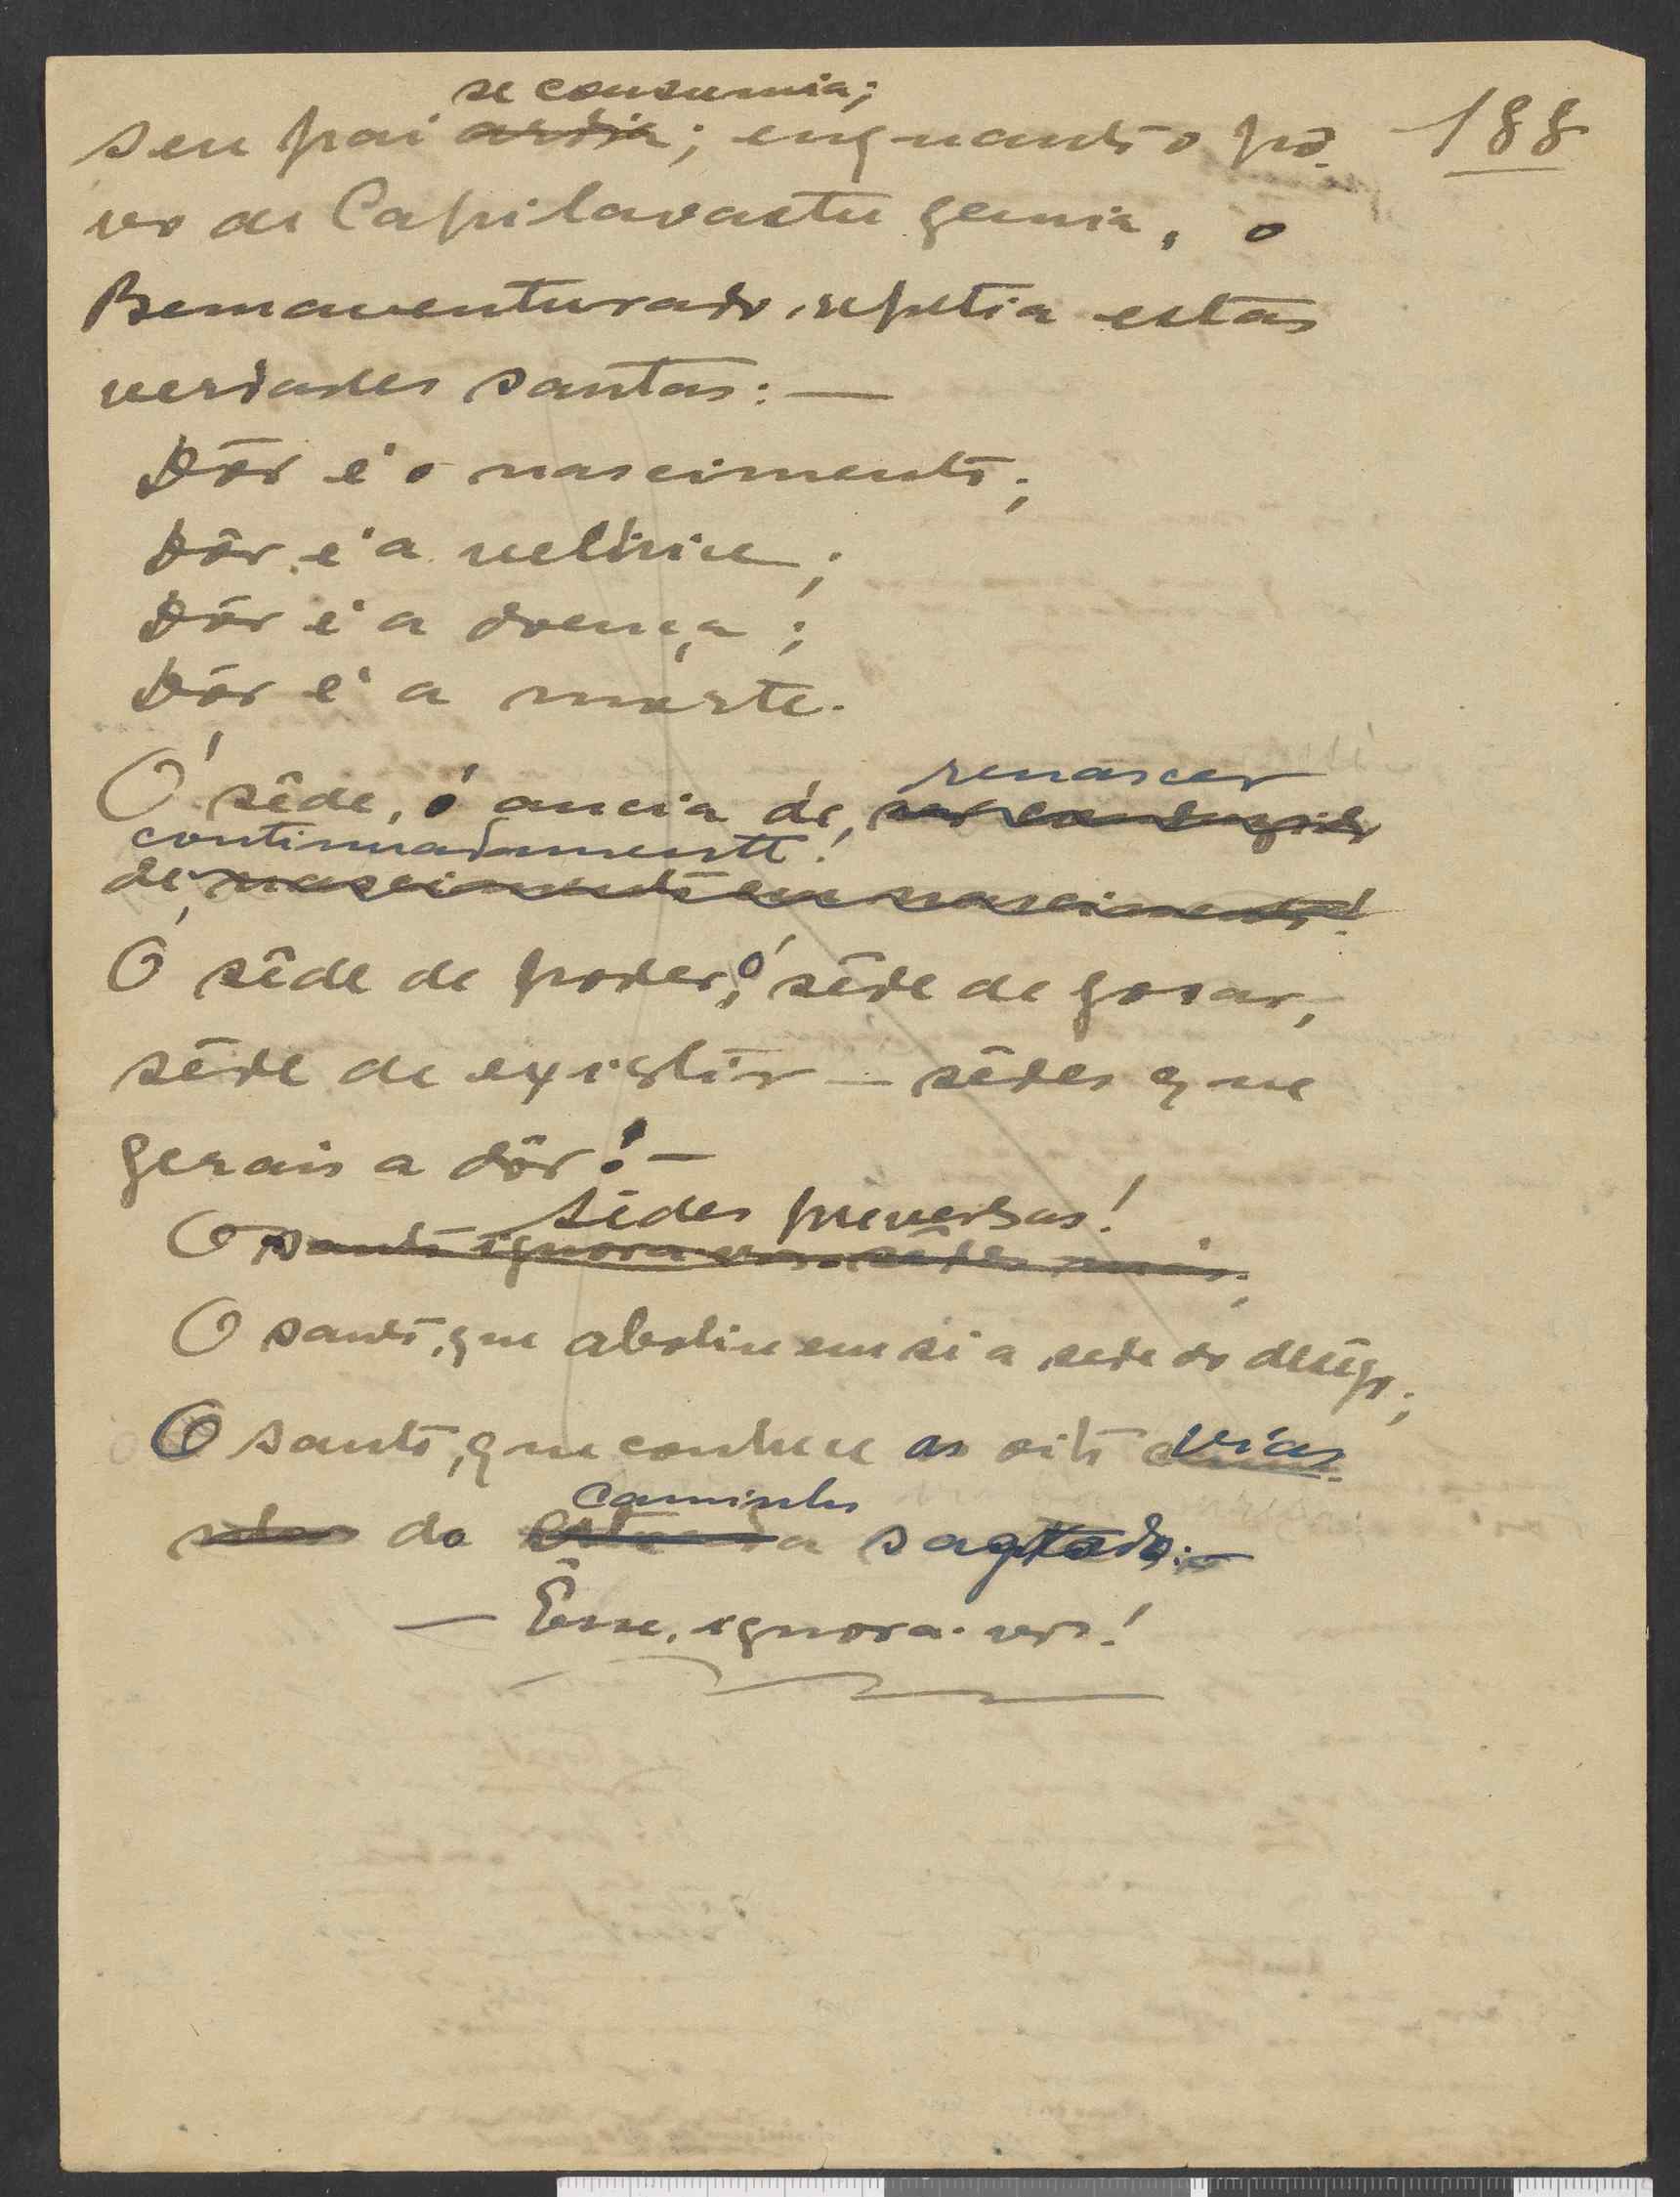 188
se consumia;
seu pai ardia; enquanto o po-
vo de Capilavastu gemia, o
Bemaventurado, repetia estas
verdades santas: —
Dôr é o nascimento;
Dôr é a velhice;
Dôr é a doença;
Dôr é a morte.
renascer
Ó sêde, ó ancia de, ser conduzido
continuadamente!
de, nascimento em nascimento!
Ó sêde de poder, ó sêde de gosar,
sêde de existir — sêdes que
gerais a dôr! —
sêdes preversas!
O santo ignora-vos. sêdes más;
O santo, que aboliu em si a sede do desejo;
O santo, que conhece as oito vias
do
caminho
sagrado: —
— Êsse, ignora-vos!